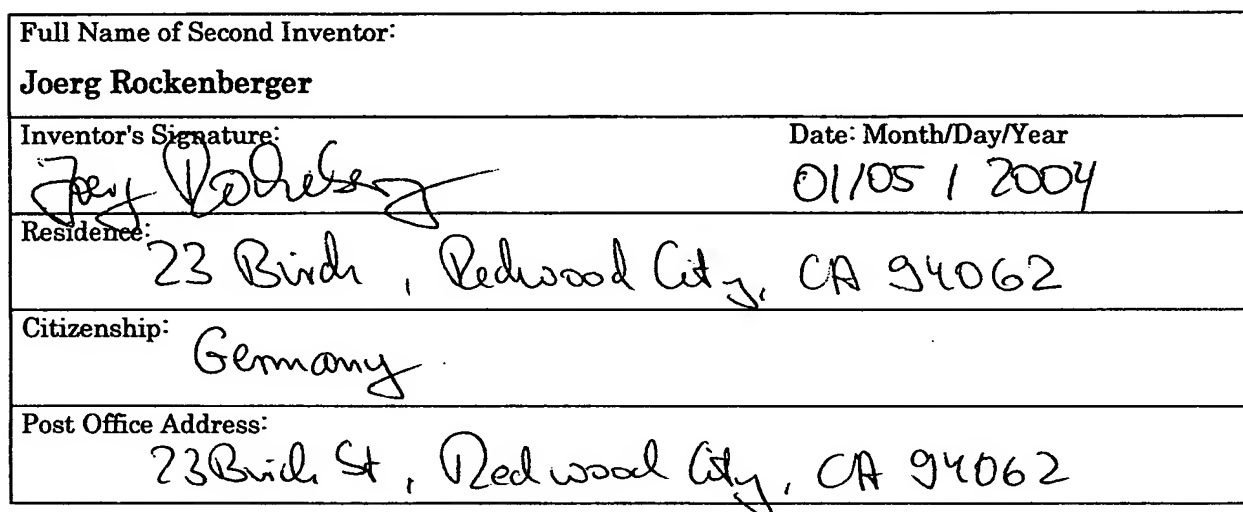 Full Name of Second Inventor:
Joerg Rockenberger
Inventor's Signature: Date: Month/Day/Year
Joerg Rockenberger 01/05/2004
Residence:
23 Birch, Redwood City, CA 94062
Citizenship:
Germany
Post Office Address:
23 Birch St, Redwood City, CA 94062